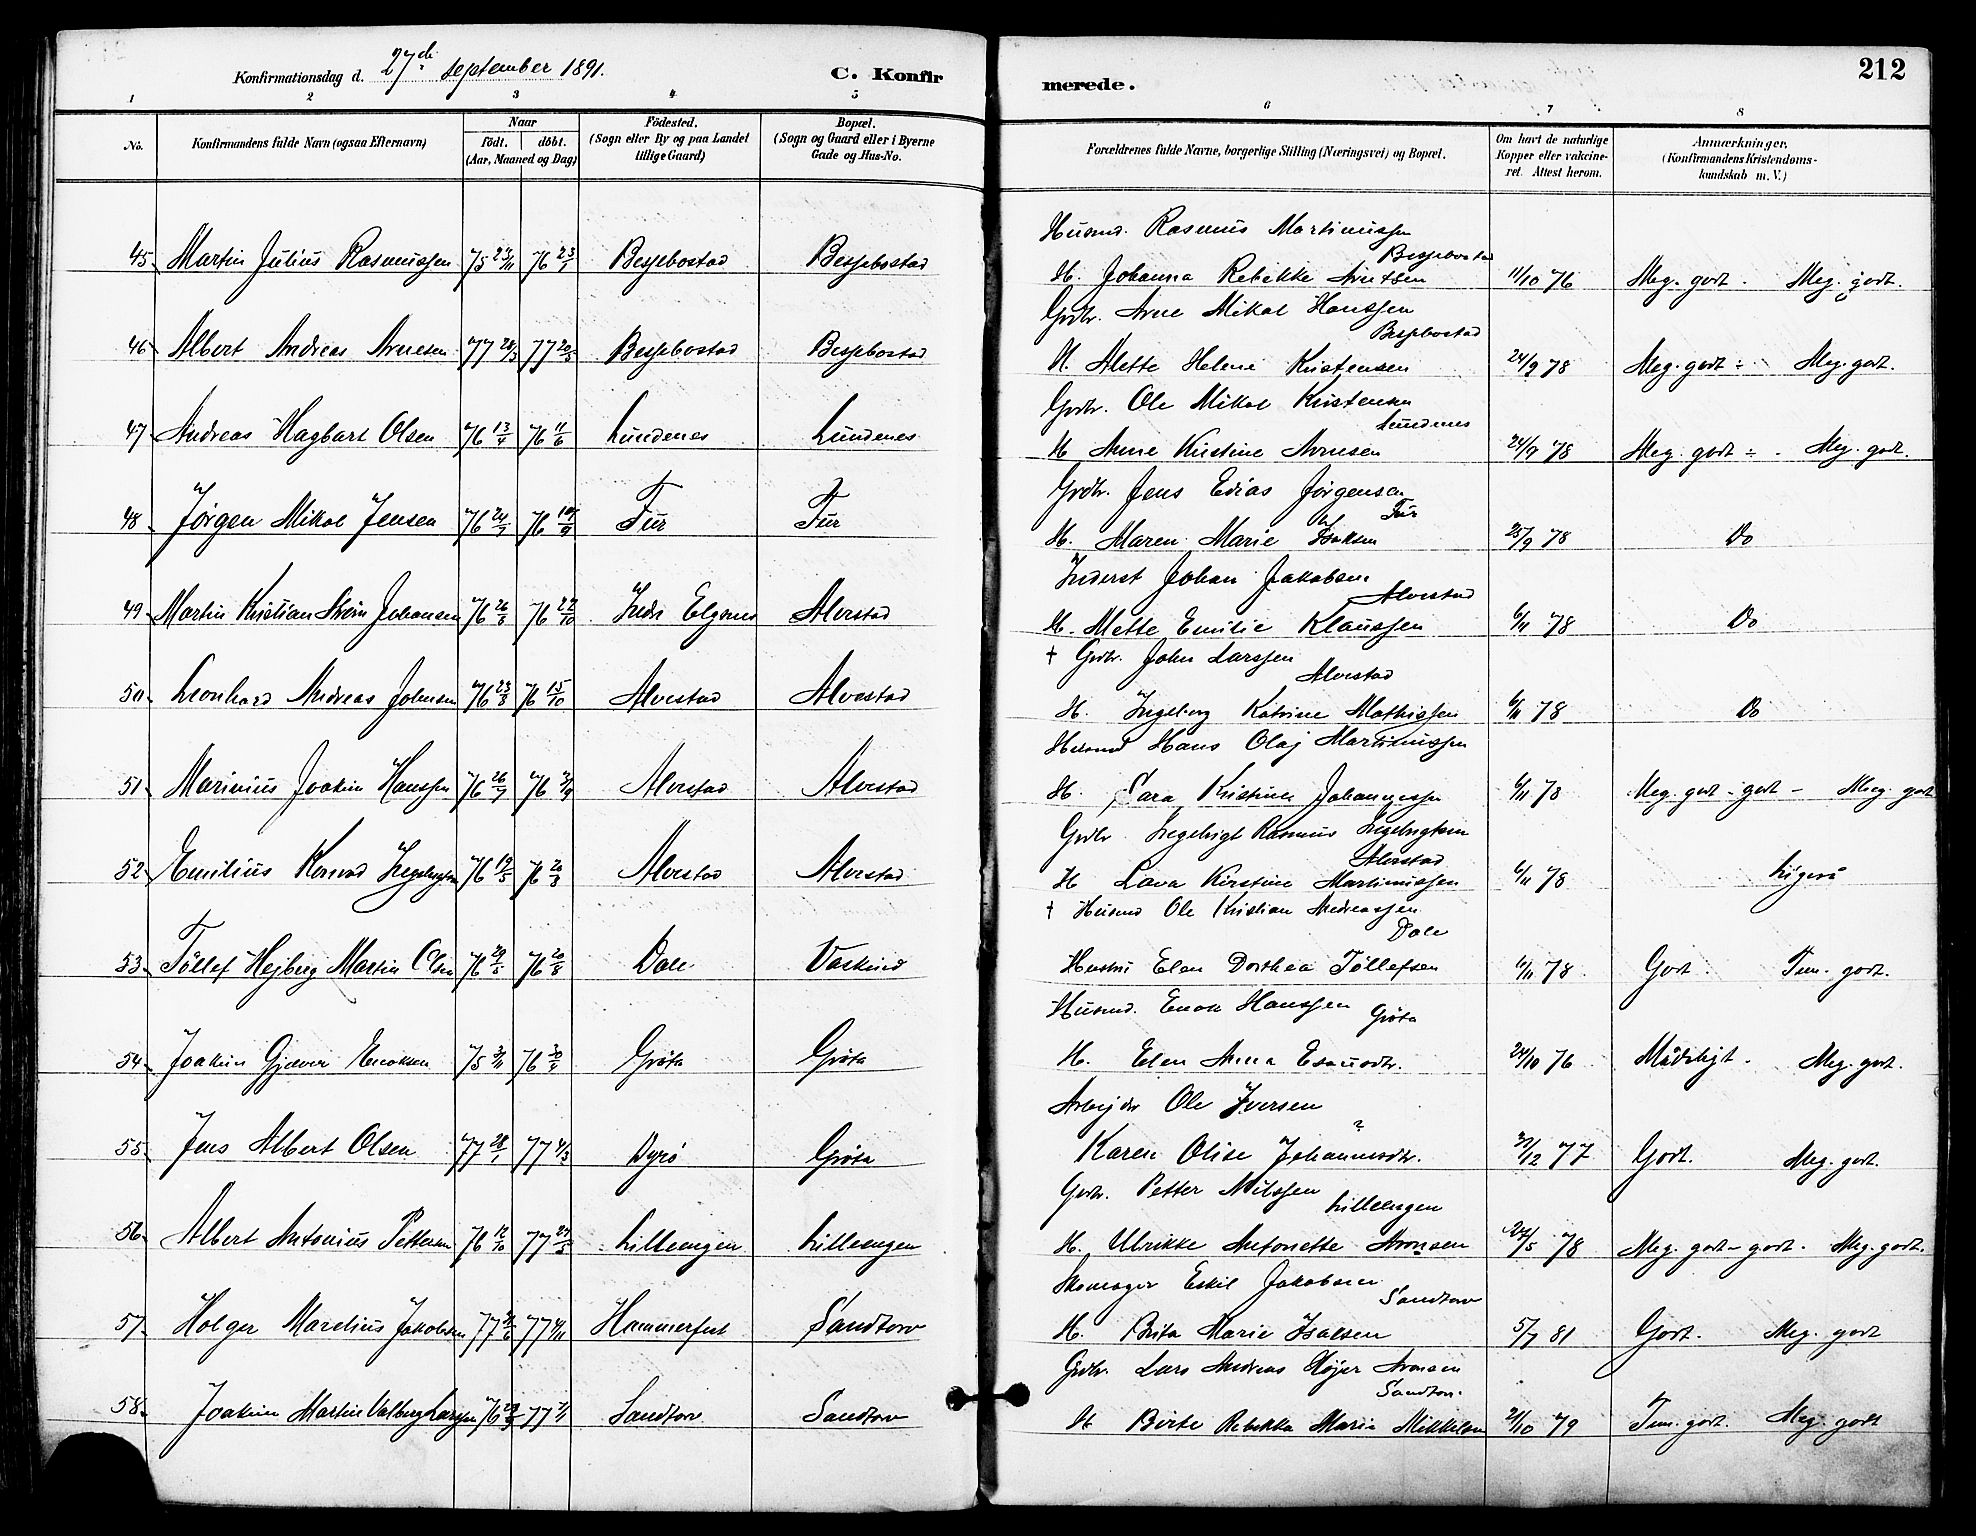 Konfirmationsdag d. 27de september 1891.
C. Konfir
merede.
212
1 2 3 4 5 6 7 8
No.
Konfirmandens fulde Navn (ogsaa Efternavn)
Naar
Födt. döbt.
(Aar, Maaned og Dag)
Födested.
(Sogn eller By og paa Landet
tillige Gaard)
Bopæl.
(Sogn og Gaard eller i Byerne
Gade og Hus-No.
Forældrenes fulde Navne, borgerlige Stilling (Næringsvei) og Bopæl.
Om havt de naturlige
Kopper eller vakcine-
ret. Attest herom.
Anmærkninger.
(Konfirmandens Kristendoms-
kundskab m. V.)
Husmd. Rasmus Martinussen
Bessebostad
45. Martin Julius Rasmussen 75 23/11 76 23/1 Bessebostad Bessebostad H. Johanna Rebekke Arntsen 11/10 76 Meg. godt. Meg. godt.
Grdbr. Arne Mikal Hanssen
Bessebostad
46 Albert Andreas Arnesen 77 28/3 77 20/5 Bessebostad Bessebostad H. Mette Helene Kristensen 24/9 78 Meg. godt ÷ Meg. godt.
Grdbr. Ole Mikal Kristensen
Lundenes
47 Andreas Hagbart Olsen 76 13/4 76 11/6 Lundenes Lundenes H Anne Kristine Arnesen 24/9 78 Meg. godt ÷ Meg. godt.
Grdbr. Jens Edias Jörgensen
Fur
48 Jörgen Mikal Jensen 76 24/7 76 Fur Fur H. Maren Marie Isaksen 25/9 78 Do
Inderst Johan Jakobsen
Alvestad
49 Martin Kristian Johansen 76 26/8 76 22/10 Indr Elgsnes Alvestad H. Mette Emilie Klaussen 6/11 78 Do
† Grdbr. John Larssen
Alvestad
50 Leonhard Andreas Johnsen 76 23/8 76 15/10 Alvestad Alvestad H. Ingeborg Katrine Mathissen 6/11 78 Do
Husmd Hans Olaj Martinussen
51 Marinius Joakim Hanssen 76 26/7 76 3/9 Alvestad Alvestad H. Sara Kristine Johannessen 6/11 78 Meg. godt - godt - Meg. godt
Grdbr. Ingebrigt Rasmus Ingebrigtsen
Alvestad
52 Emilius Konrad Ingebrigtsen 76 19/5 76 20/8 Alvestad Alvestad H Lava Kirstine Martinussen 6/11 78 Ligeså
† Husmd Ole Kristian Andreassen
Dale
53 Töllef Hejberg Martin Olsen 76 76 20/8 Dale Hustru Elen Dorthea Töllefsen 6/11 78 Godt. Tem. godt.
Husmd. Enok Hanssen
Gröta
54 Joakim Gjæver Enoksen 75 3/11 76 Gröta Gröta H. Elen Anna Esaiasdtr. 24/10 76 Mådeligt. Meg. godt.
Arbejder Ole Iversen
?
55 Jens Albert Olsen 77 28/1 77 4/3 Dyrö Gröta Karen Olise Johannesdtr. 77 Godt. Meg. godt.
Grdbr. Petter Nilssen
Lilleengen
56 Albert Antonius Pettersen 76 12/10 77 Lilleengen Lilleengen H. Ulrikke Antonette Aronsen 78 Meg. godt - godt. Meg. godt.
Skomager Eskil Jakobsen
Sandtorv
57 Holger Marelius Jakobsen 77 77 4/11 Hammerfest Sandtorv H. Brita Marie Isaksen 5/7 81 Godt. Meg. godt
Grdbr. Lars Andreas Höjer Aronsen
Sandtorv.
58 Joakim Martin Valberg Larssen 76 77 7/1 Sandtorv Sandtorv H Birte Rebekka Maria Mikkelsen 21/10 79 Tem. godt. Meg. godt